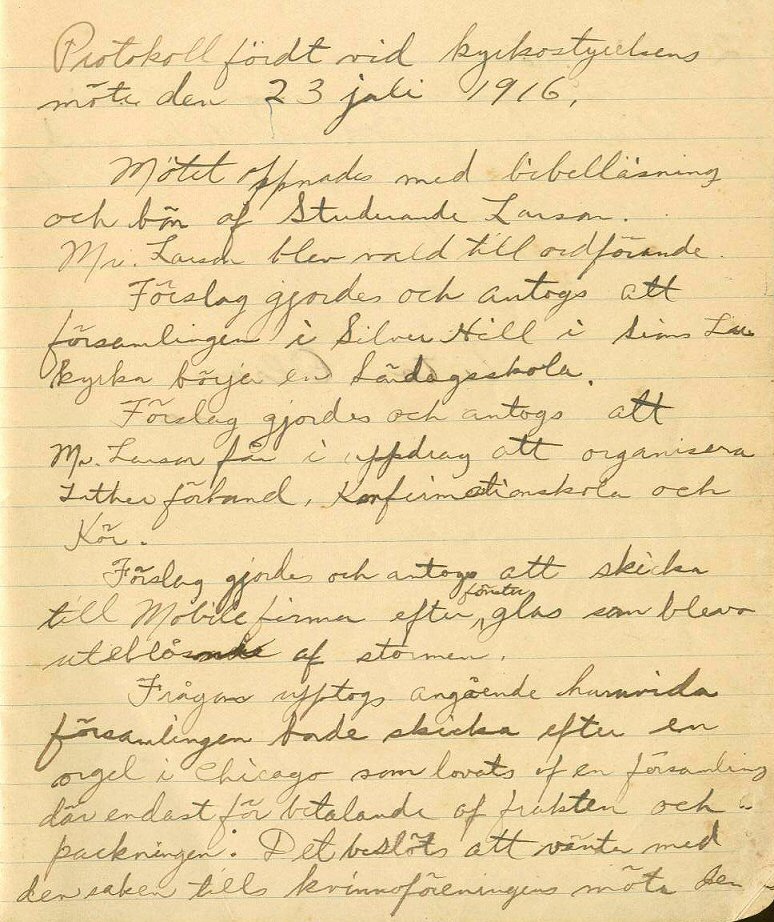 Protokoll fördt vid kyrkostyrelsens
möte den 23 juli 1916.
Mötet öppnades med bibelläsning
och bön af Studerande Larson.
Mr. Larson blev vald till ordförande.
Förslag gjordes och antogs att
församlingen i Silver Hill i Sims
kyrka börja en Lördagsskola.
Förslag gjordes och antogs att
Mr. Larson får i uppdrag att organisera
Luther förbund, Konfirmationskola och
Kör.
Förslag gjordes och antogs att skicka
till Mobile firma efter fönster glas som blevo
uteblåsnde af stormen.
Frågan upptogs angående huruvida
församlingen borde skicka efter en
orgel i Chicago som lovats af en församling
där endast för betalande af frakten och
packningen. Det beslöts att vänta med
den saken tills kvinnoföreningens möte den